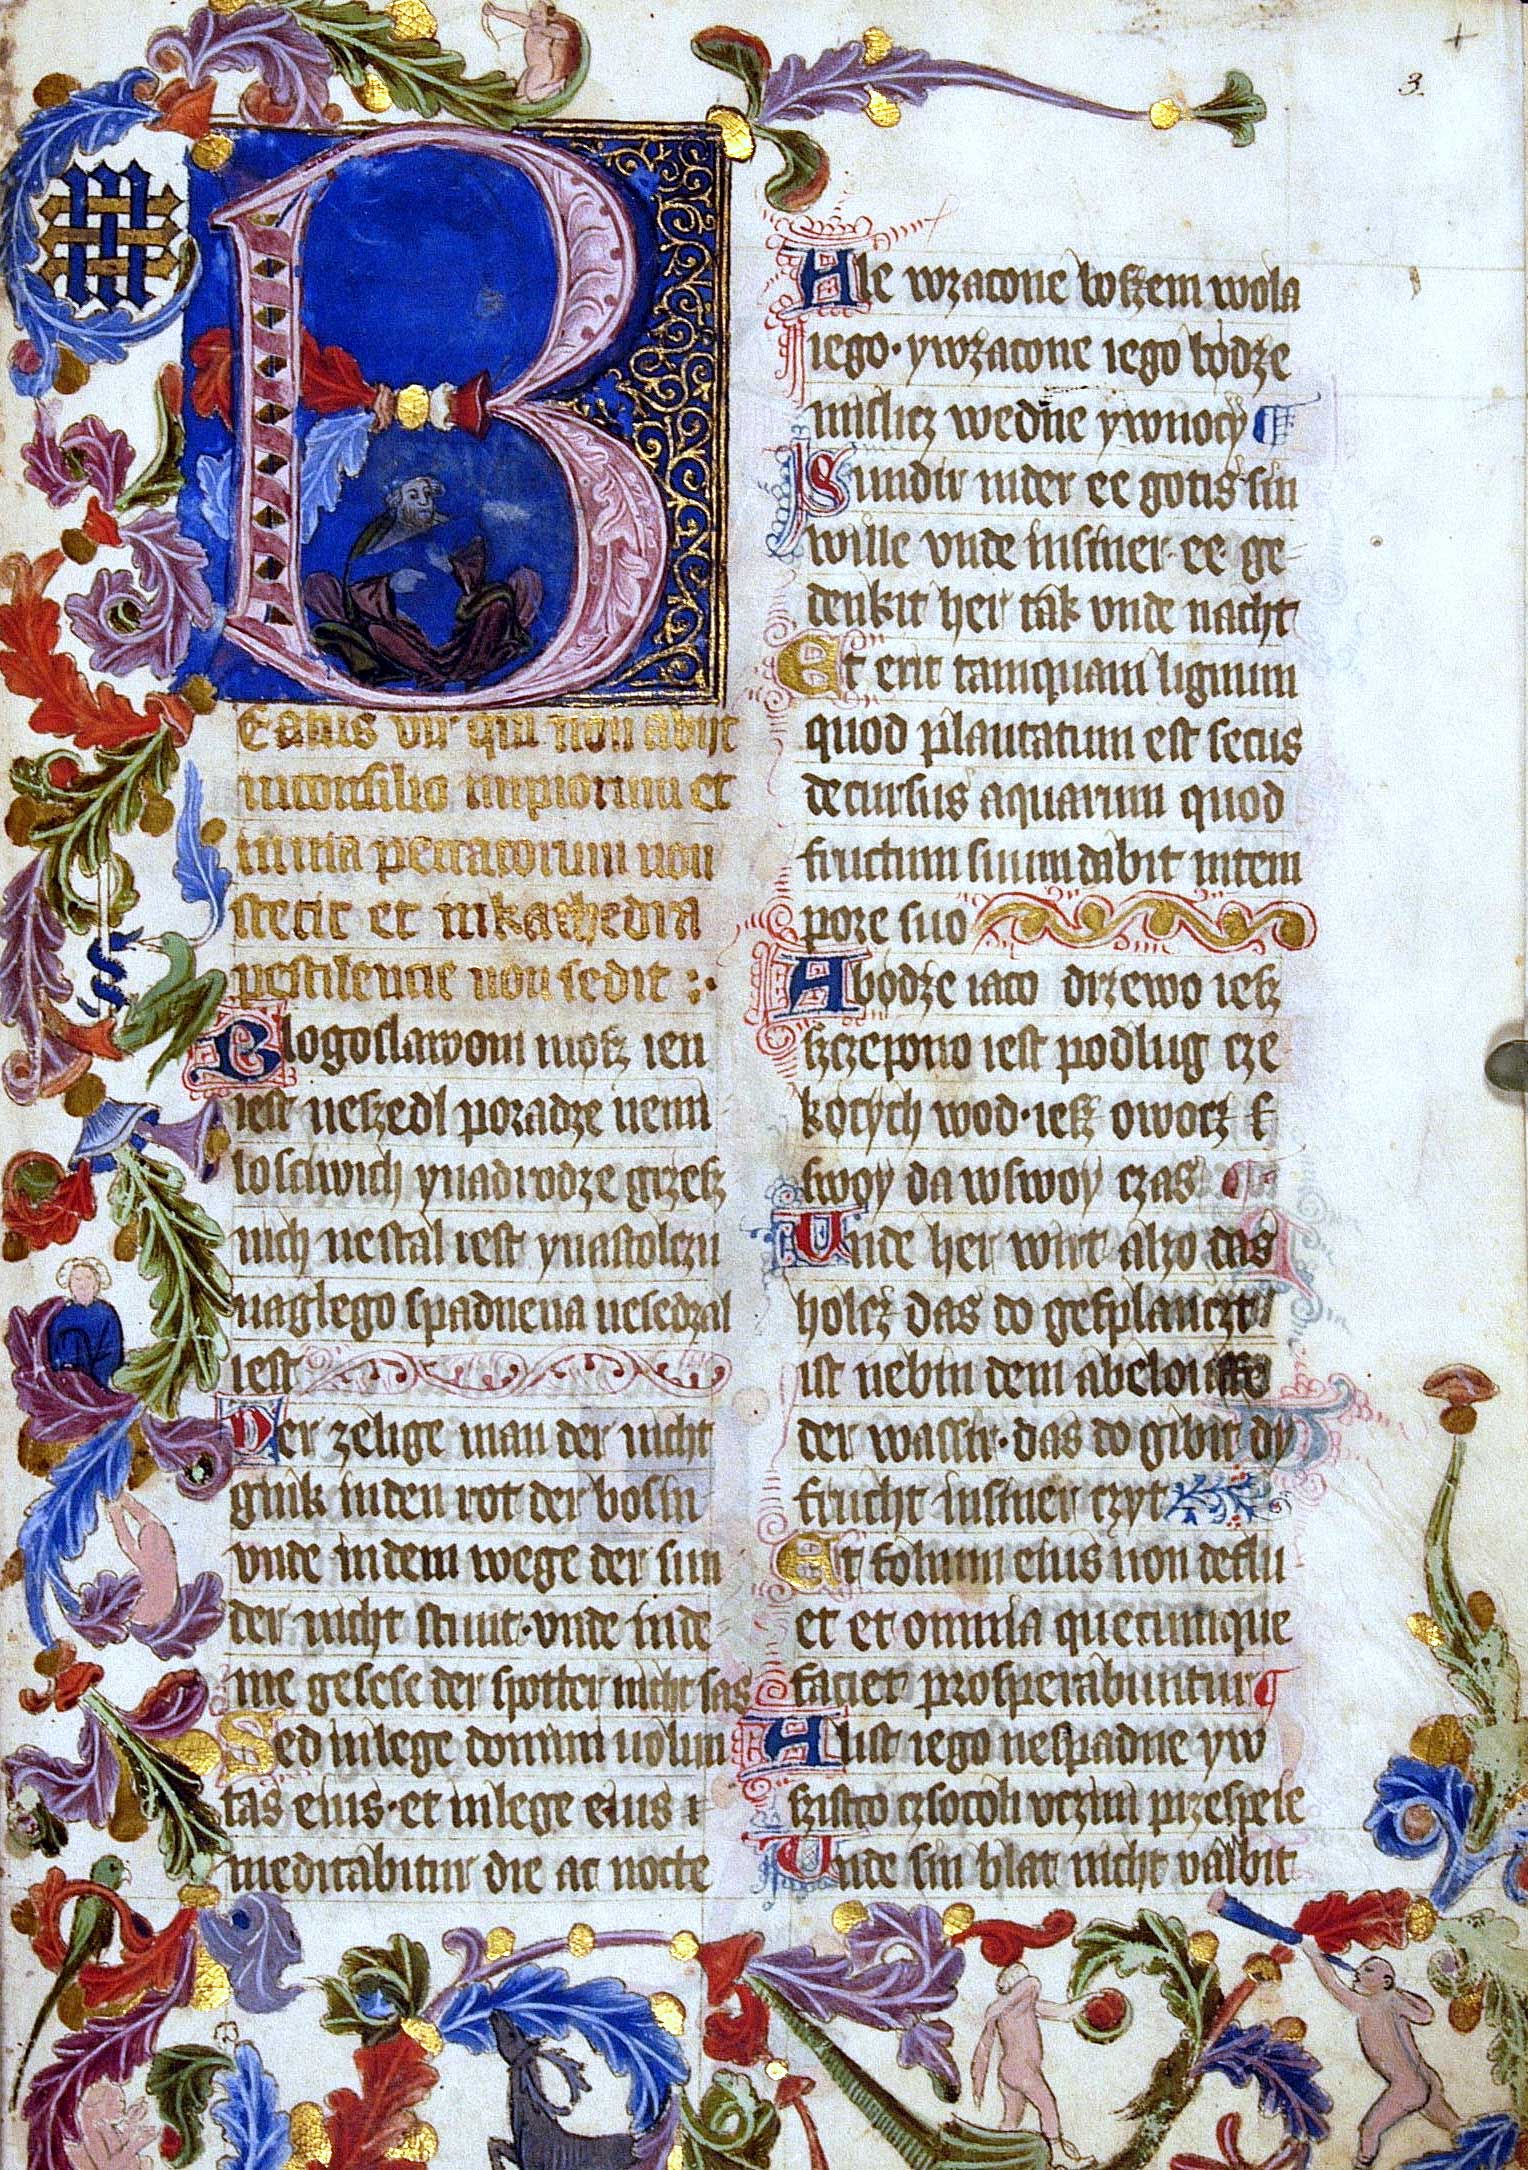 3.
Beatus vir qui non abijt
inconsilio impiorum et
inuia peccatorum non
stetit et inkathedra
pestilencie non sedit :·
Blogoslawoni mősz ien
iest neszedl poradze nemi
losciwich ynadrodze grzesz
nich nestal iest ynastolczu
naglego spadnena nesedzal
iest
Der zelige man der nicht
gink inden rot der bosin
vnde indem wege der sun
der nicht stunt·vnde inde
me gesese der spotter nicht sas
Sed inlege domini uolun
tas eius·et inlege eius
meditabitur die ac nocte
Ale wzacone boszem wola
iego·ywzacone iego bődze
mislicz wedne ywnocy
Sundir inder ee gotis sin
wille vnde insiner ee ge-
denkit her tak vnde nacht
Et erit tamquam lignum
quod plantatum est secus
decursus aquarum quod
fructum suum dabit intem
pore suo
A bődze iaco drzewo iesz
szczepono iest podlug cze
kőcych wod·iesz owocz
swoy da wswoy czas
Unde her wirt alzo das
holcz das do gesplanczt
ist nebin dem abelouffe
der wassir·das do gibit dy
frucht insiner czyt
Et folium eius non deflu
et et omnia quecumque
faciet prosperabuntur
A list iego nespadne yw
szistco czsocoli vczini przespeie
Unde sin blat nicht valbit